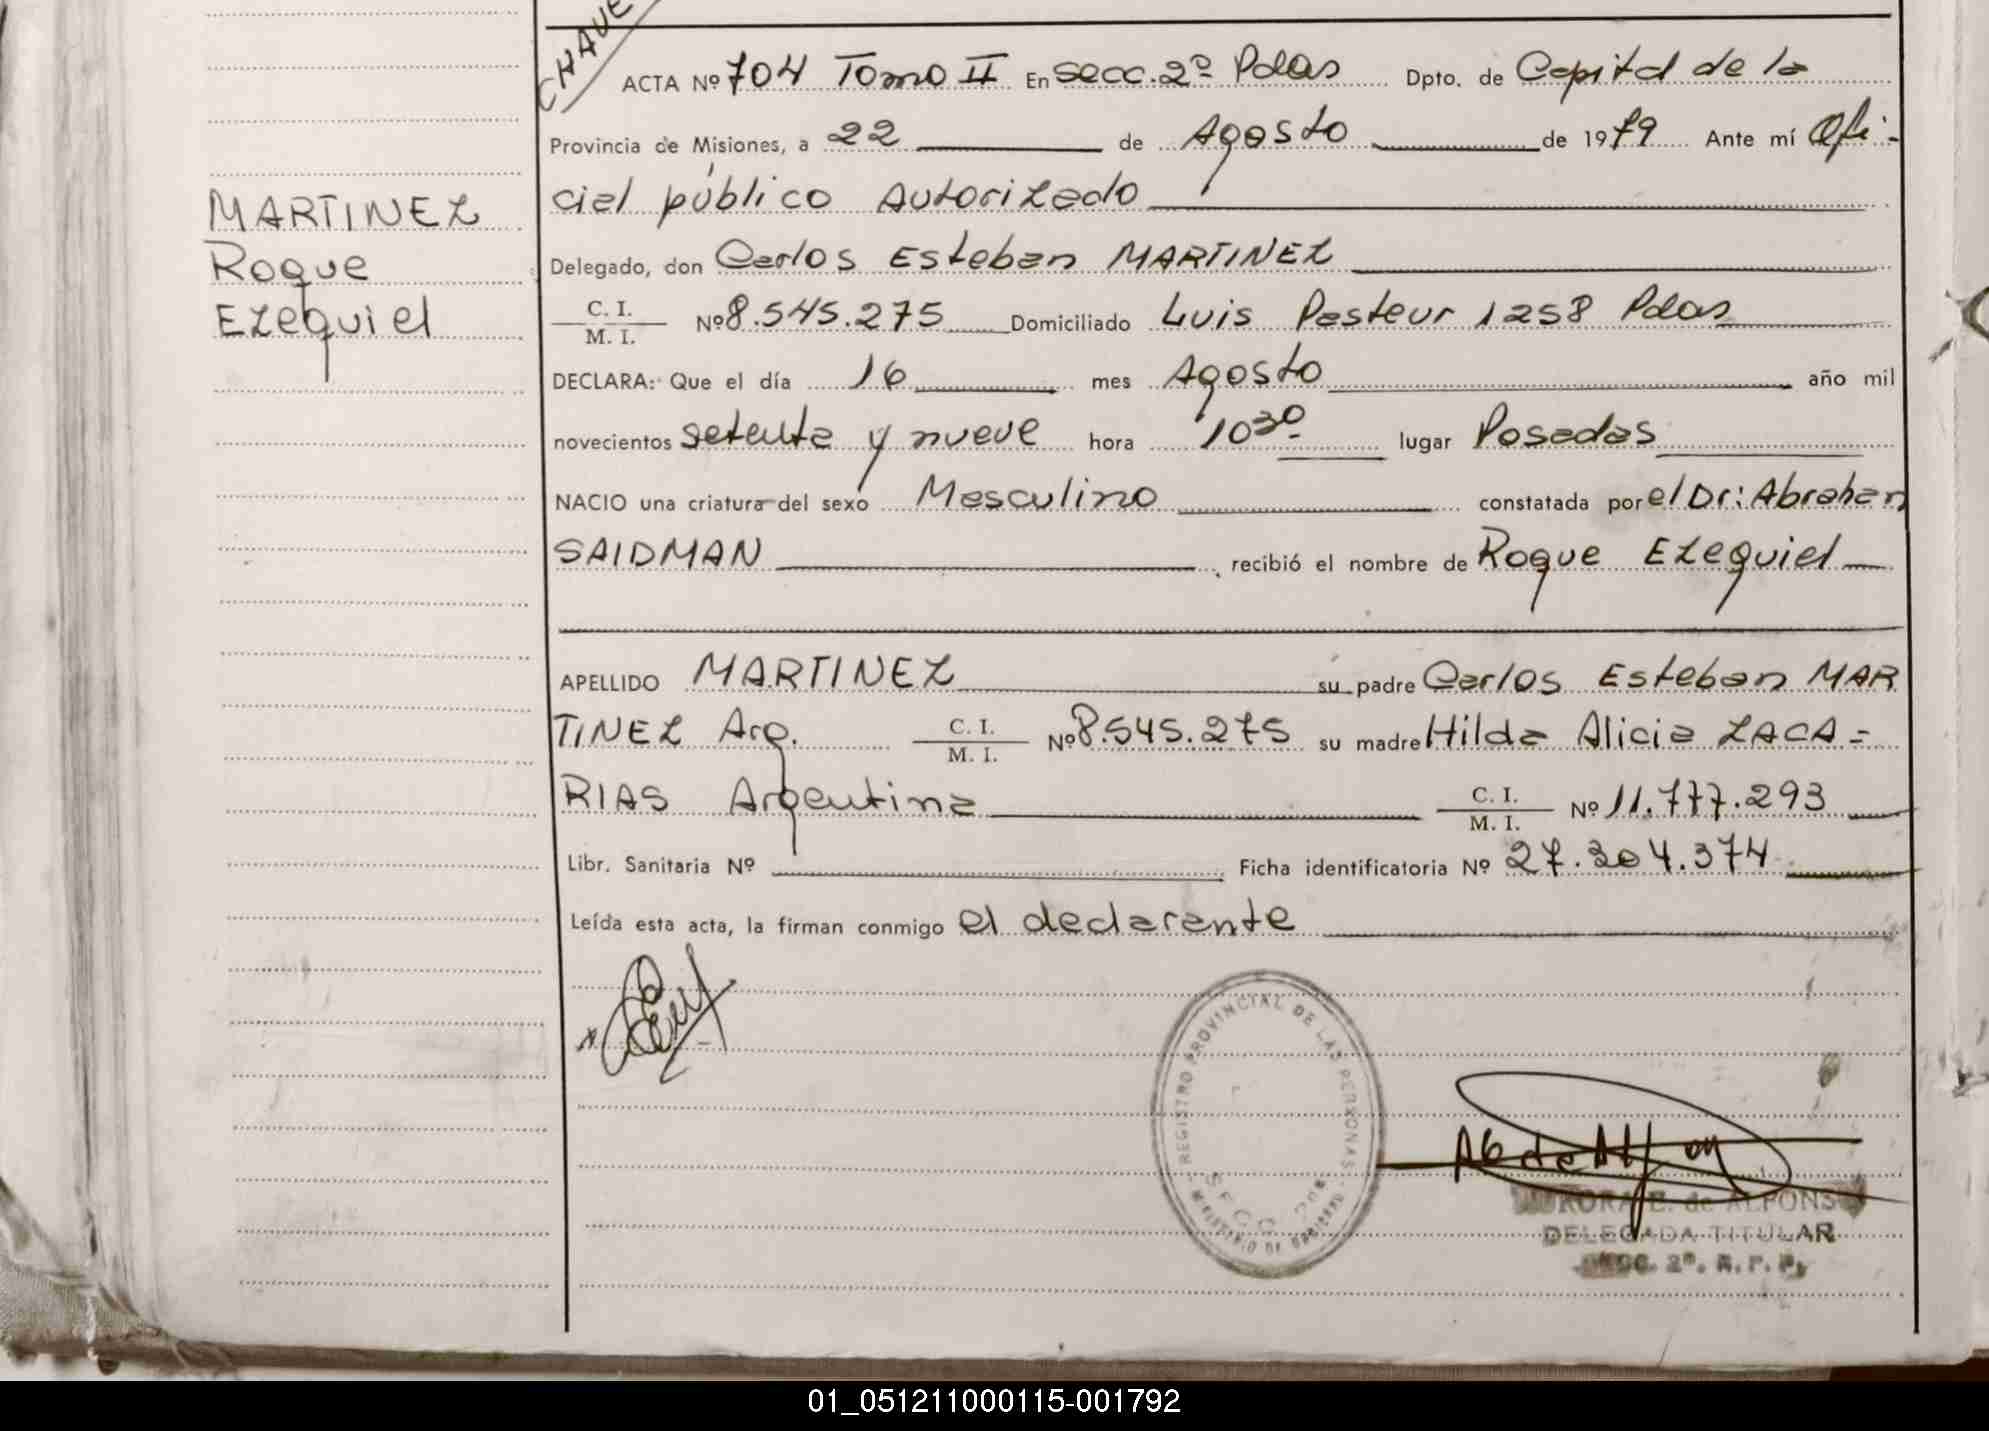 CHAVE
ACTA Nº 704 Tomo II En secc. 2º Pdas Dpto. de Capital de la
Provincia de Misiones, a 22 de Agosto de 1979 Ante mí Ofi-
cial público Autorizado
MARTINEZ
Roque
Ezequiel
Delegado, don Carlos Esteban MARTINEZ
C. I.
M. I. Nº 8.545.275 Domiciliado Luis Pasteur 1258 Pdas
DECLARA: Que el día 16 mes Agosto año mil
novecientos setenta y nueve hora 10 30 lugar Posadas
NACIO una criatura del sexo Masculino constatada por el Dr: Abrahan
SAIDMAN recibió el nombre de Roque Ezequiel
APELLIDO MARTINEZ su padre Carlos Esteban MAR
TINEZ Arg. C. I.
M. I. Nº 8.545.275 su madre Hilda Alicia ZACA=
RIAS Argentina C. I.
M. I. Nº 11.777.293
Libr. Sanitaria Nº Ficha identificatoria Nº 27.304.374
Leída esta acta, la firman conmigo el declarante
REGISTRO PROVINCIAL DE LAS PERSONAS
SECC. 2da
MINISTERIO DE GOBIERNO
E. de ALFONSO
DELEGADA TITULAR
SECC. 2ª. R. P. P.
01_051211000115-001792